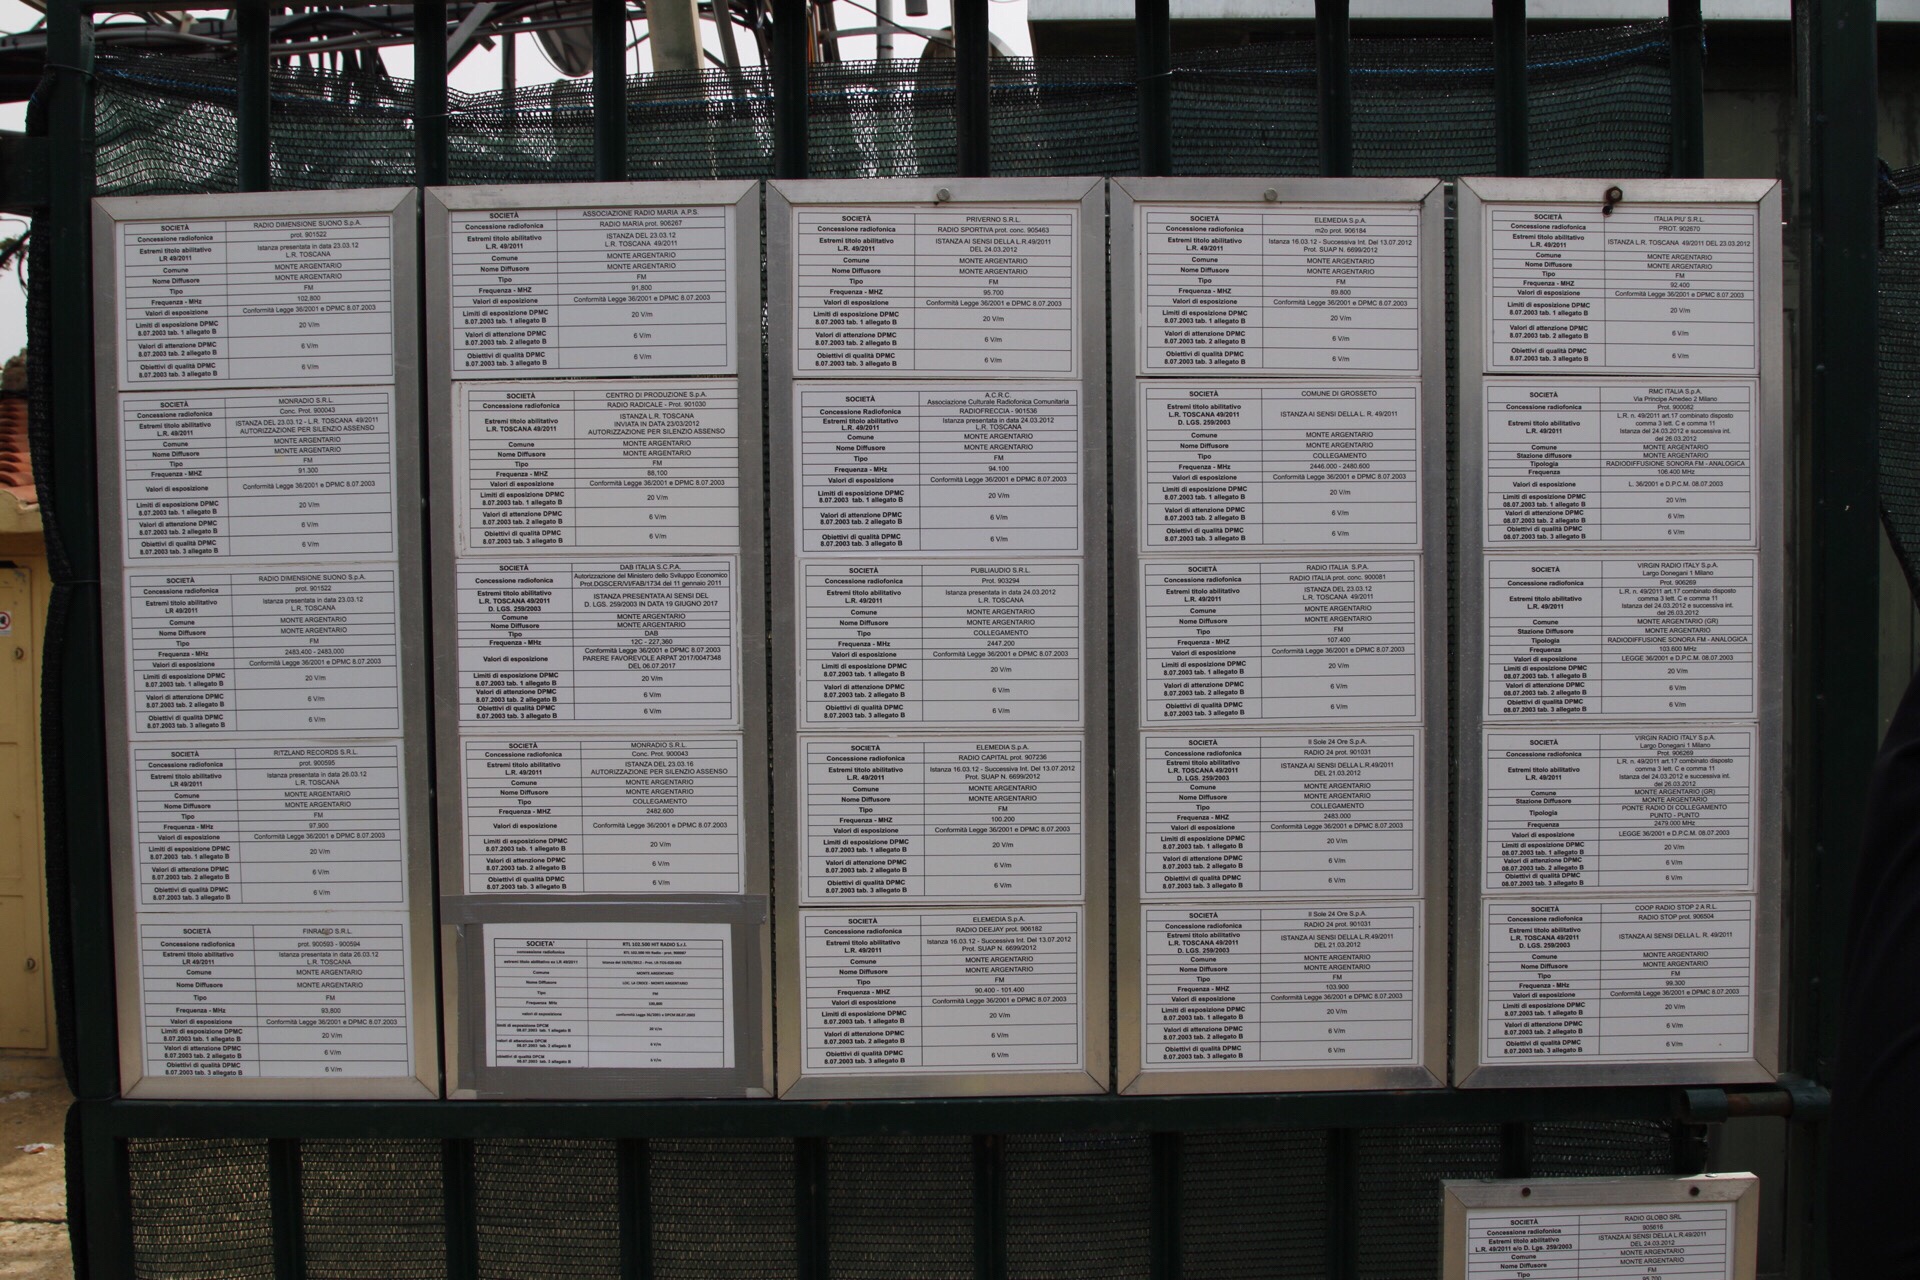 SOCIETÀ RADIO DIMENSIONE SUONO S.p.A.
Concessione radiofonica prot. 901522
Estremi titolo abilitativo LR 49/2011 Istanza presentata in data 23.03.12 L.R. TOSCANA
Comune MONTE ARGENTARIO
Nome Diffusore MONTE ARGENTARIO
Tipo FM
Frequenza - MHz 102,800
Valori di esposizione Conformità Legge 36/2001 e DPMC 8.07.2003
Limiti di esposizione DPMC 8.07.2003 tab. 1 allegato B 20 V/m
Valori di attenzione DPMC 8.07.2003 tab. 2 allegato B 6 V/m
Obiettivi di qualità DPMC 8.07.2003 tab. 3 allegato B 6 V/m
SOCIETÀ MONRADIO S.R.L.
Concessione radiofonica Conc. Prot. 900043
Estremi titolo abilitativo L.R. 49/2011 ISTANZA DEL 23.03.12 - L.R. TOSCANA 49/2011 AUTORIZZAZIONE PER SILENZIO ASSENSO
Comune MONTE ARGENTARIO
Nome Diffusore MONTE ARGENTARIO
Tipo FM
Frequenza - MHZ 91.300
Valori di esposizione Conformità Legge 36/2001 e DPMC 8.07.2003
Limiti di esposizione DPMC 8.07.2003 tab. 1 allegato B 20 V/m
Valori di attenzione DPMC 8.07.2003 tab. 2 allegato B 6 V/m
Obiettivi di qualità DPMC 8.07.2003 tab. 3 allegato B 6 V/m
SOCIETÀ RADIO DIMENSIONE SUONO S.p.A.
Concessione radiofonica prot. 901522
Estremi titolo abilitativo LR 49/2011 Istanza presentata in data 23.03.12 L.R. TOSCANA
Comune MONTE ARGENTARIO
Nome Diffusore MONTE ARGENTARIO
Tipo FM
Frequenza - MHz 2483,400 - 2483,000
Valori di esposizione Conformità Legge 36/2001 e DPMC 8.07.2003
Limiti di esposizione DPMC 8.07.2003 tab. 1 allegato B 20 V/m
Valori di attenzione DPMC 8.07.2003 tab. 2 allegato B 6 V/m
Obiettivi di qualità DPMC 8.07.2003 tab. 3 allegato B 6 V/m
SOCIETÀ RITZLAND RECORDS S.R.L.
Concessione radiofonica prot. 900595
Estremi titolo abilitativo LR 49/2011 Istanza presentata in data 26.03.12 L.R. TOSCANA
Comune MONTE ARGENTARIO
Nome Diffusore MONTE ARGENTARIO
Tipo FM
Frequenza - MHz 97,900
Valori di esposizione Conformità Legge 36/2001 e DPMC 8.07.2003
Limiti di esposizione DPMC 8.07.2003 tab. 1 allegato B 20 V/m
Valori di attenzione DPMC 8.07.2003 tab. 2 allegato B 6 V/m
Obiettivi di qualità DPMC 8.07.2003 tab. 3 allegato B 6 V/m
SOCIETÀ FINRADIO S.R.L.
Concessione radiofonica prot. 900593 - 900594
Estremi titolo abilitativo LR 49/2011 Istanza presentata in data 26.03.12 L.R. TOSCANA
Comune MONTE ARGENTARIO
Nome Diffusore MONTE ARGENTARIO
Tipo FM
Frequenza - MHz 93,800
Valori di esposizione Conformità Legge 36/2001 e DPMC 8.07.2003
Limiti di esposizione DPMC 8.07.2003 tab. 1 allegato B 20 V/m
Valori di attenzione DPMC 8.07.2003 tab. 2 allegato B 6 V/m
Obiettivi di qualità DPMC 8.07.2003 tab. 3 allegato B 6 V/m
SOCIETÀ ASSOCIAZIONE RADIO MARIA A.P.S.
Concessione radiofonica RADIO MARIA prot. 906267
Estremi titolo abilitativo L.R. 49/2011 ISTANZA DEL 23.03.12 L.R. TOSCANA 49/2011
Comune MONTE ARGENTARIO
Nome Diffusore MONTE ARGENTARIO
Tipo FM
Frequenza - MHZ 91,800
Valori di esposizione Conformità Legge 36/2001 e DPMC 8.07.2003
Limiti di esposizione DPMC 8.07.2003 tab. 1 allegato B 20 V/m
Valori di attenzione DPMC 8.07.2003 tab. 2 allegato B 6 V/m
Obiettivi di qualità DPMC 8.07.2003 tab. 3 allegato B 6 V/m
SOCIETÀ CENTRO DI PRODUZIONE S.p.A.
Concessione radiofonica RADIO RADICALE - Prot. 901030
Estremi titolo abilitativo L.R. TOSCANA 49/2011 ISTANZA L.R. TOSCANA INVIATA IN DATA 23/03/2012 AUTORIZZAZIONE PER SILENZIO ASSENSO
Comune MONTE ARGENTARIO
Nome Diffusore MONTE ARGENTARIO
Tipo FM
Frequenza - MHZ 88,100
Valori di esposizione Conformità Legge 36/2001 e DPMC 8.07.2003
Limiti di esposizione DPMC 8.07.2003 tab. 1 allegato B 20 V/m
Valori di attenzione DPMC 8.07.2003 tab. 2 allegato B 6 V/m
Obiettivi di qualità DPMC 8.07.2003 tab. 3 allegato B 6 V/m
SOCIETÀ DAB ITALIA S.C.P.A.
Concessione radiofonica Autorizzazione del Ministero dello Sviluppo Economico Prot.DGSCER/VI/FAB/1734 del 11 gennaio 2011
Estremi titolo abilitativo L.R. TOSCANA 49/2011 D. LGS. 259/2003 ISTANZA PRESENTATA AI SENSI DEL D. LGS. 259/2003 IN DATA 19 GIUGNO 2017
Comune MONTE ARGENTARIO
Nome Diffusore MONTE ARGENTARIO
Tipo DAB
Frequenza - MHz 12C - 227,360
Valori di esposizione Conformità Legge 36/2001 e DPMC 8.07.2003 PARERE FAVOREVOLE ARPAT 2017/0047348 DEL 06.07.2017
Limiti di esposizione DPMC 8.07.2003 tab. 1 allegato B 20 V/m
Valori di attenzione DPMC 8.07.2003 tab. 2 allegato B 6 V/m
Obiettivi di qualità DPMC 8.07.2003 tab. 3 allegato B 6 V/m
SOCIETÀ MONRADIO S.R.L.
Concessione radiofonica Conc. Prot. 900043
Estremi titolo abilitativo L.R. 49/2011 ISTANZA DEL 23.03.16 AUTORIZZAZIONE PER SILENZIO ASSENSO
Comune MONTE ARGENTARIO
Nome Diffusore MONTE ARGENTARIO
Tipo COLLEGAMENTO
Frequenza - MHZ 2482.600
Valori di esposizione Conformità Legge 36/2001 e DPMC 8.07.2003
Limiti di esposizione DPMC 8.07.2003 tab. 1 allegato B 20 V/m
Valori di attenzione DPMC 8.07.2003 tab. 2 allegato B 6 V/m
Obiettivi di qualità DPMC 8.07.2003 tab. 3 allegato B 6 V/m
SOCIETA' RTL 102.500 HIT RADIO S.r.l.
concessione radiofonica RTL 102.500 Hit Radio - prot.
estremi titolo abilitativo ex LR 49/2011
Comune MONTE ARGENTARIO
Nome Diffusore LOC. LA CROCE - MONTE ARGENTARIO
Tipo FM
Frequenza MHz
valori di esposizione conformità Legge 36/2001 e DPCM 08.07.2003
limiti di esposizione DPCM 08.07.2003 tab. 1 allegato B 20 V/m
valori di attenzione DPCM 08.07.2003 tab. 2 allegato B 6 V/m
obiettivi di qualità DPCM 08.07.2003 tab. 3 allegato B 6 V/m
SOCIETÀ PRIVERNO S.R.L.
Concessione radiofonica RADIO SPORTIVA prot. conc. 905463
Estremi titolo abilitativo L.R. 49/2011 ISTANZA AI SENSI DELLA L.R.49/2011 DEL 24.03.2012
Comune MONTE ARGENTARIO
Nome Diffusore MONTE ARGENTARIO
Tipo FM
Frequenza - MHz 95.700
Valori di esposizione Conformità Legge 36/2001 e DPMC 8.07.2003
Limiti di esposizione DPMC 8.07.2003 tab. 1 allegato B 20 V/m
Valori di attenzione DPMC 8.07.2003 tab. 2 allegato B 6 V/m
Obiettivi di qualità DPMC 8.07.2003 tab. 3 allegato B 6 V/m
SOCIETÀ A.C.R.C. Associazione Culturale Radiofonica Comunitaria
Concessione Radiofonica RADIOFRECCIA - 901536
Estremi titolo abilitativo L.R. 49/2011 Istanza presentata in data 24.03.2012 L.R. TOSCANA
Comune MONTE ARGENTARIO
Nome Diffusore MONTE ARGENTARIO
Tipo FM
Frequenza - MHz 94.100
Valori di esposizione Conformità Legge 36/2001 e DPMC 8.07.2003
Limiti di esposizione DPMC 8.07.2003 tab. 1 allegato B 20 V/m
Valori di attenzione DPMC 8.07.2003 tab. 2 allegato B 6 V/m
Obiettivi di qualità DPMC 8.07.2003 tab. 3 allegato B 6 V/m
SOCIETÀ PUBLIAUDIO S.R.L.
Concessione radiofonica Prot. 903294
Estremi titolo abilitativo L.R. 49/2011 Istanza presentata in data 24.03.2012 L.R. TOSCANA
Comune MONTE ARGENTARIO
Nome Diffusore MONTE ARGENTARIO
Tipo COLLEGAMENTO
Frequenza - MHz 2447.200
Valori di esposizione Conformità Legge 36/2001 e DPMC 8.07.2003
Limiti di esposizione DPMC 8.07.2003 tab. 1 allegato B 20 V/m
Valori di attenzione DPMC 8.07.2003 tab. 2 allegato B 6 V/m
Obiettivi di qualità DPMC 8.07.2003 tab. 3 allegato B 6 V/m
SOCIETÀ ELEMEDIA S.p.A.
Concessione radiofonica RADIO CAPITAL prot. 907236
Estremi titolo abilitativo L.R. 49/2011 Istanza 16.03.12 - Successiva Int. Del 13.07.2012 Prot. SUAP N. 6699/2012
Comune MONTE ARGENTARIO
Nome Diffusore MONTE ARGENTARIO
Tipo FM
Frequenza - MHz 100.200
Valori di esposizione Conformità Legge 36/2001 e DPMC 8.07.2003
Limiti di esposizione DPMC 8.07.2003 tab. 1 allegato B 20 V/m
Valori di attenzione DPMC 8.07.2003 tab. 2 allegato B 6 V/m
Obiettivi di qualità DPMC 8.07.2003 tab. 3 allegato B 6 V/m
SOCIETÀ ELEMEDIA S.p.A.
Concessione radiofonica RADIO DEEJAY prot. 906182
Estremi titolo abilitativo L.R. 49/2011 Istanza 16.03.12 - Successiva Int. Del 13.07.2012 Prot. SUAP N. 6699/2012
Comune MONTE ARGENTARIO
Nome Diffusore MONTE ARGENTARIO
Tipo FM
Frequenza - MHz 90.400 - 101.400
Valori di esposizione Conformità Legge 36/2001 e DPMC 8.07.2003
Limiti di esposizione DPMC 8.07.2003 tab. 1 allegato B 20 V/m
Valori di attenzione DPMC 8.07.2003 tab. 2 allegato B 6 V/m
Obiettivi di qualità DPMC 8.07.2003 tab. 3 allegato B 6 V/m
SOCIETÀ ELEMEDIA S.p.A.
Concessione radiofonica m2o prot. 906184
Estremi titolo abilitativo L.R. 49/2011 Istanza 16.03.12 - Successiva Int. Del 13.07.2012 Prot. SUAP N. 6699/2012
Comune MONTE ARGENTARIO
Nome Diffusore MONTE ARGENTARIO
Tipo FM
Frequenza - MHz 89.800
Valori di esposizione Conformità Legge 36/2001 e DPMC 8.07.2003
Limiti di esposizione DPMC 8.07.2003 tab. 1 allegato B 20 V/m
Valori di attenzione DPMC 8.07.2003 tab. 2 allegato B 6 V/m
Obiettivi di qualità DPMC 8.07.2003 tab. 3 allegato B 6 V/m
SOCIETÀ COMUNE DI GROSSETO
Estremi titolo abilitativo L.R. TOSCANA 49/2011 D. LGS. 259/2003 ISTANZA AI SENSI DELLA L. R. 49/2011
Comune MONTE ARGENTARIO
Nome Diffusore MONTE ARGENTARIO
Tipo COLLEGAMENTO
Frequenza - MHz 2446.000 - 2480.600
Valori di esposizione Conformità Legge 36/2001 e DPMC 8.07.2003
Limiti di esposizione DPMC 8.07.2003 tab. 1 allegato B 20 V/m
Valori di attenzione DPMC 8.07.2003 tab. 2 allegato B 6 V/m
Obiettivi di qualità DPMC 8.07.2003 tab. 3 allegato B 6 V/m
SOCIETÀ RADIO ITALIA S.P.A.
Concessione radiofonica RADIO ITALIA prot. conc. 900081
Estremi titolo abilitativo L.R. 49/2011 ISTANZA DEL 23.03.12 L.R. TOSCANA 49/2011
Comune MONTE ARGENTARIO
Nome Diffusore MONTE ARGENTARIO
Tipo FM
Frequenza - MHZ 107.400
Valori di esposizione Conformità Legge 36/2001 e DPMC 8.07.2003
Limiti di esposizione DPMC 8.07.2003 tab. 1 allegato B 20 V/m
Valori di attenzione DPMC 8.07.2003 tab. 2 allegato B 6 V/m
Obiettivi di qualità DPMC 8.07.2003 tab. 3 allegato B 6 V/m
SOCIETÀ Il Sole 24 Ore S.p.A.
Concessione radiofonica RADIO 24 prot. 901031
Estremi titolo abilitativo L.R. TOSCANA 49/2011 D. LGS. 259/2003 ISTANZA AI SENSI DELLA L.R.49/2011 DEL 21.03.2012
Comune MONTE ARGENTARIO
Nome Diffusore MONTE ARGENTARIO
Tipo COLLEGAMENTO
Frequenza - MHz 2483.000
Valori di esposizione Conformità Legge 36/2001 e DPMC 8.07.2003
Limiti di esposizione DPMC 8.07.2003 tab. 1 allegato B 20 V/m
Valori di attenzione DPMC 8.07.2003 tab. 2 allegato B 6 V/m
Obiettivi di qualità DPMC 8.07.2003 tab. 3 allegato B 6 V/m
SOCIETÀ Il Sole 24 Ore S.p.A.
Concessione radiofonica RADIO 24 prot. 901031
Estremi titolo abilitativo L.R. TOSCANA 49/2011 D. LGS. 259/2003 ISTANZA AI SENSI DELLA L.R.49/2011 DEL 21.03.2012
Comune MONTE ARGENTARIO
Nome Diffusore MONTE ARGENTARIO
Tipo FM
Frequenza - MHz 103.900
Valori di esposizione Conformità Legge 36/2001 e DPMC 8.07.2003
Limiti di esposizione DPMC 8.07.2003 tab. 1 allegato B 20 V/m
Valori di attenzione DPMC 8.07.2003 tab. 2 allegato B 6 V/m
Obiettivi di qualità DPMC 8.07.2003 tab. 3 allegato B 6 V/m
SOCIETÀ ITALIA PIU' S.R.L.
Concessione radiofonica PROT. 902670
Estremi titolo abilitativo L.R. 49/2011 ISTANZA L.R. TOSCANA 49/2011 DEL 23.03.2012
Comune MONTE ARGENTARIO
Nome Diffusore MONTE ARGENTARIO
Tipo FM
Frequenza - MHz 92.400
Valori di esposizione Conformità Legge 36/2001 e DPMC 8.07.2003
Limiti di esposizione DPMC 8.07.2003 tab. 1 allegato B 20 V/m
Valori di attenzione DPMC 8.07.2003 tab. 2 allegato B 6 V/m
Obiettivi di qualità DPMC 8.07.2003 tab. 3 allegato B 6 V/m
SOCIETÀ RMC ITALIA S.p.A. Via Principe Amedeo 2 Milano
Concessione radiofonica Prot. 900082
Estremi titolo abilitativo L.R. 49/2011 L.R. n. 49/2011 art.17 combinato disposto comma 3 lett. C e comma 11 Istanza del 24.03.2012 e successiva int. del 26.03.2012
Comune MONTE ARGENTARIO
Stazione diffusore MONTE ARGENTARIO
Tipologia RADIODIFFUSIONE SONORA FM - ANALOGICA
Frequenza 106.400 MHz
Valori di esposizione L. 36/2001 e D.P.C.M. 08.07.2003
Limiti di esposizione DPCM 08.07.2003 tab. 1 allegato B 20 V/m
Valori di attenzione DPCM 08.07.2003 tab. 2 allegato B 6 V/m
Obiettivi di qualità DPCM 08.07.2003 tab. 3 allegato B 6 V/m
SOCIETÀ VIRGIN RADIO ITALY S.p.A. Largo Donegani 1 Milano
Concessione radiofonica Prot. 906269
Estremi titolo abilitativo L.R. 49/2011 L.R. n. 49/2011 art.17 combinato disposto comma 3 lett. C e comma 11 Istanza del 24.03.2012 e successiva int. del 26.03.2012
Comune MONTE ARGENTARIO (GR)
Stazione Diffusore MONTE ARGENTARIO
Tipologia RADIODIFFUSIONE SONORA FM - ANALOGICA
Frequenza 103.600 MHz
Valori di esposizione LEGGE 36/2001 e D.P.C.M. 08.07.2003
Limiti di esposizione DPCM 08.07.2003 tab. 1 allegato B 20 V/m
Valori di attenzione DPCM 08.07.2003 tab. 2 allegato B 6 V/m
Obiettivi di qualità DPCM 08.07.2003 tab. 3 allegato B 6 V/m
SOCIETÀ VIRGIN RADIO ITALY S.p.A. Largo Donegani 1 Milano
Concessione radiofonica Prot. 906269
Estremi titolo abilitativo L.R. 49/2011 L.R. n. 49/2011 art.17 combinato disposto comma 3 lett. C e comma 11 Istanza del 24.03.2012 e successiva int. del 26.03.2012
Comune MONTE ARGENTARIO (GR)
Stazione Diffusore MONTE ARGENTARIO
Tipologia PONTE RADIO DI COLLEGAMENTO PUNTO - PUNTO
Frequenza 2479.000 MHz
Valori di esposizione LEGGE 36/2001 e D.P.C.M. 08.07.2003
Limiti di esposizione DPCM 08.07.2003 tab. 1 allegato B 20 V/m
Valori di attenzione DPCM 08.07.2003 tab. 2 allegato B 6 V/m
Obiettivi di qualità DPCM 08.07.2003 tab. 3 allegato B 6 V/m
SOCIETÀ COOP RADIO STOP 2 A R.L.
Concessione radiofonica RADIO STOP prot. 906504
Estremi titolo abilitativo L.R. TOSCANA 49/2011 D. LGS. 259/2003 ISTANZA AI SENSI DELLA L.R. 49/2011
Comune MONTE ARGENTARIO
Nome Diffusore MONTE ARGENTARIO
Tipo FM
Frequenza - MHz 99.300
Valori di esposizione Conformità Legge 36/2001 e DPMC 8.07.2003
Limiti di esposizione DPMC 8.07.2003 tab. 1 allegato B 20 V/m
Valori di attenzione DPMC 8.07.2003 tab. 2 allegato B 6 V/m
Obiettivi di qualità DPMC 8.07.2003 tab. 3 allegato B 6 V/m
SOCIETÀ RADIO GLOBO SRL
Concessione radiofonica 905616
Estremi titolo abilitativo L.R. 49/2011 e/o D. Lgs. 259/2003 ISTANZA AI SENSI DELLA L.R.49/2011 DEL 24.03.2012
Comune MONTE ARGENTARIO
Nome Diffusore MONTE ARGENTARIO
Tipo FM